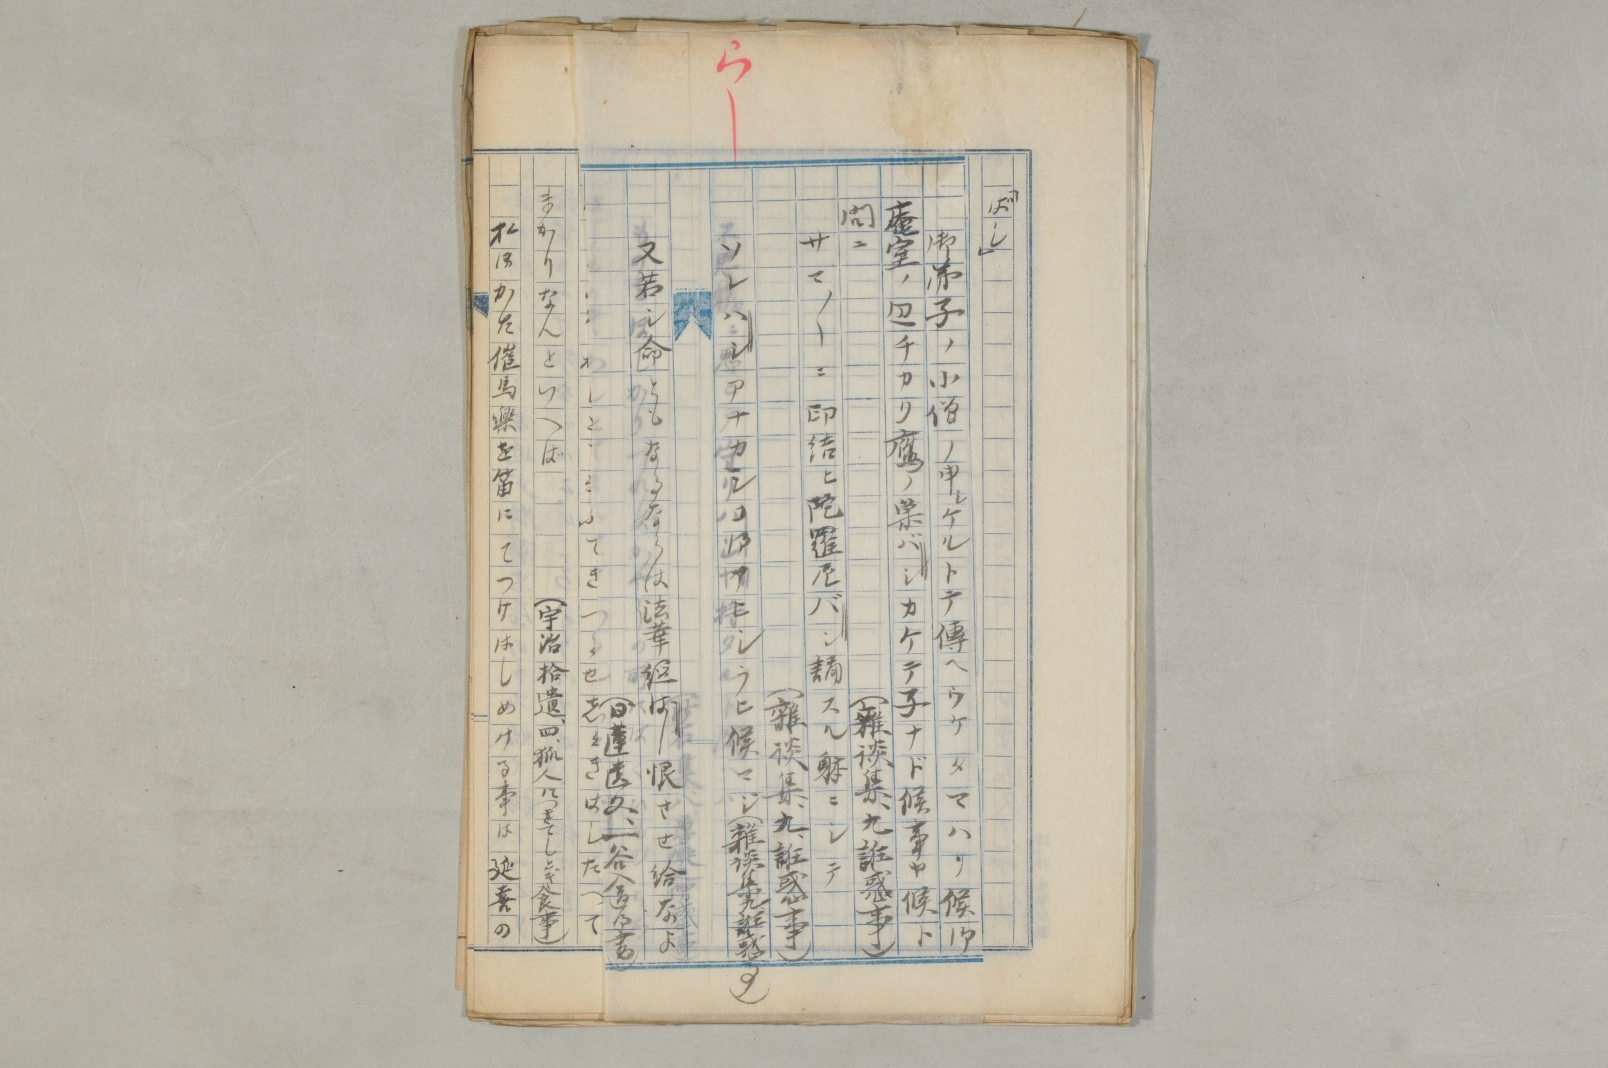 らし
「ばし」
御弟子ノ小僧ノ申シケルトテ傳ヘウケタマハリ候御
庵室ノ辺チカク鷹ノ巣バシカケテ子ナド候事ヤ候ト
問ニ
(雜談集、九、誑惑事)
サマ〳〵ニ印結ヒ陀羅尼バシ誦スル躰ニシテ
(雜談集、九、誑惑事)
ソレハシアナカシコ
候マジ(雜談集、九、誑惑事)
又若シ命ともなるならは法華経はし恨させ給なよ
(日蓮遺文、一谷入道御書)
てきつるせ
きばしたつて
まかりなんといへば
(宇治拾遺、四、狐人につきてしとぎ食事)
おほかた催馬樂を笛にてつけはしめける事は延喜の